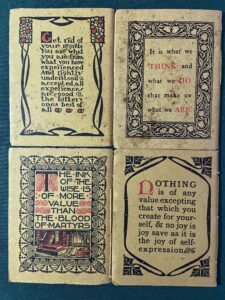 Get rid of
your regrets
You are what
you are from
what you have
experienced
And rightly
understood &
accepted, all
experiences
are good, &
the bitter-
ones best of
all
It is what we
THINK and
what we DO
that make us
what we ARE
THE INK OF
THE WISE IS
OF MORE
VALUE
THAN
THE BLOOD
OF MARTYRS
NOTHING
is of any
value excepting
that which you
create for your-
self, & no joy is
joy save as it is
the joy of self-
expression.